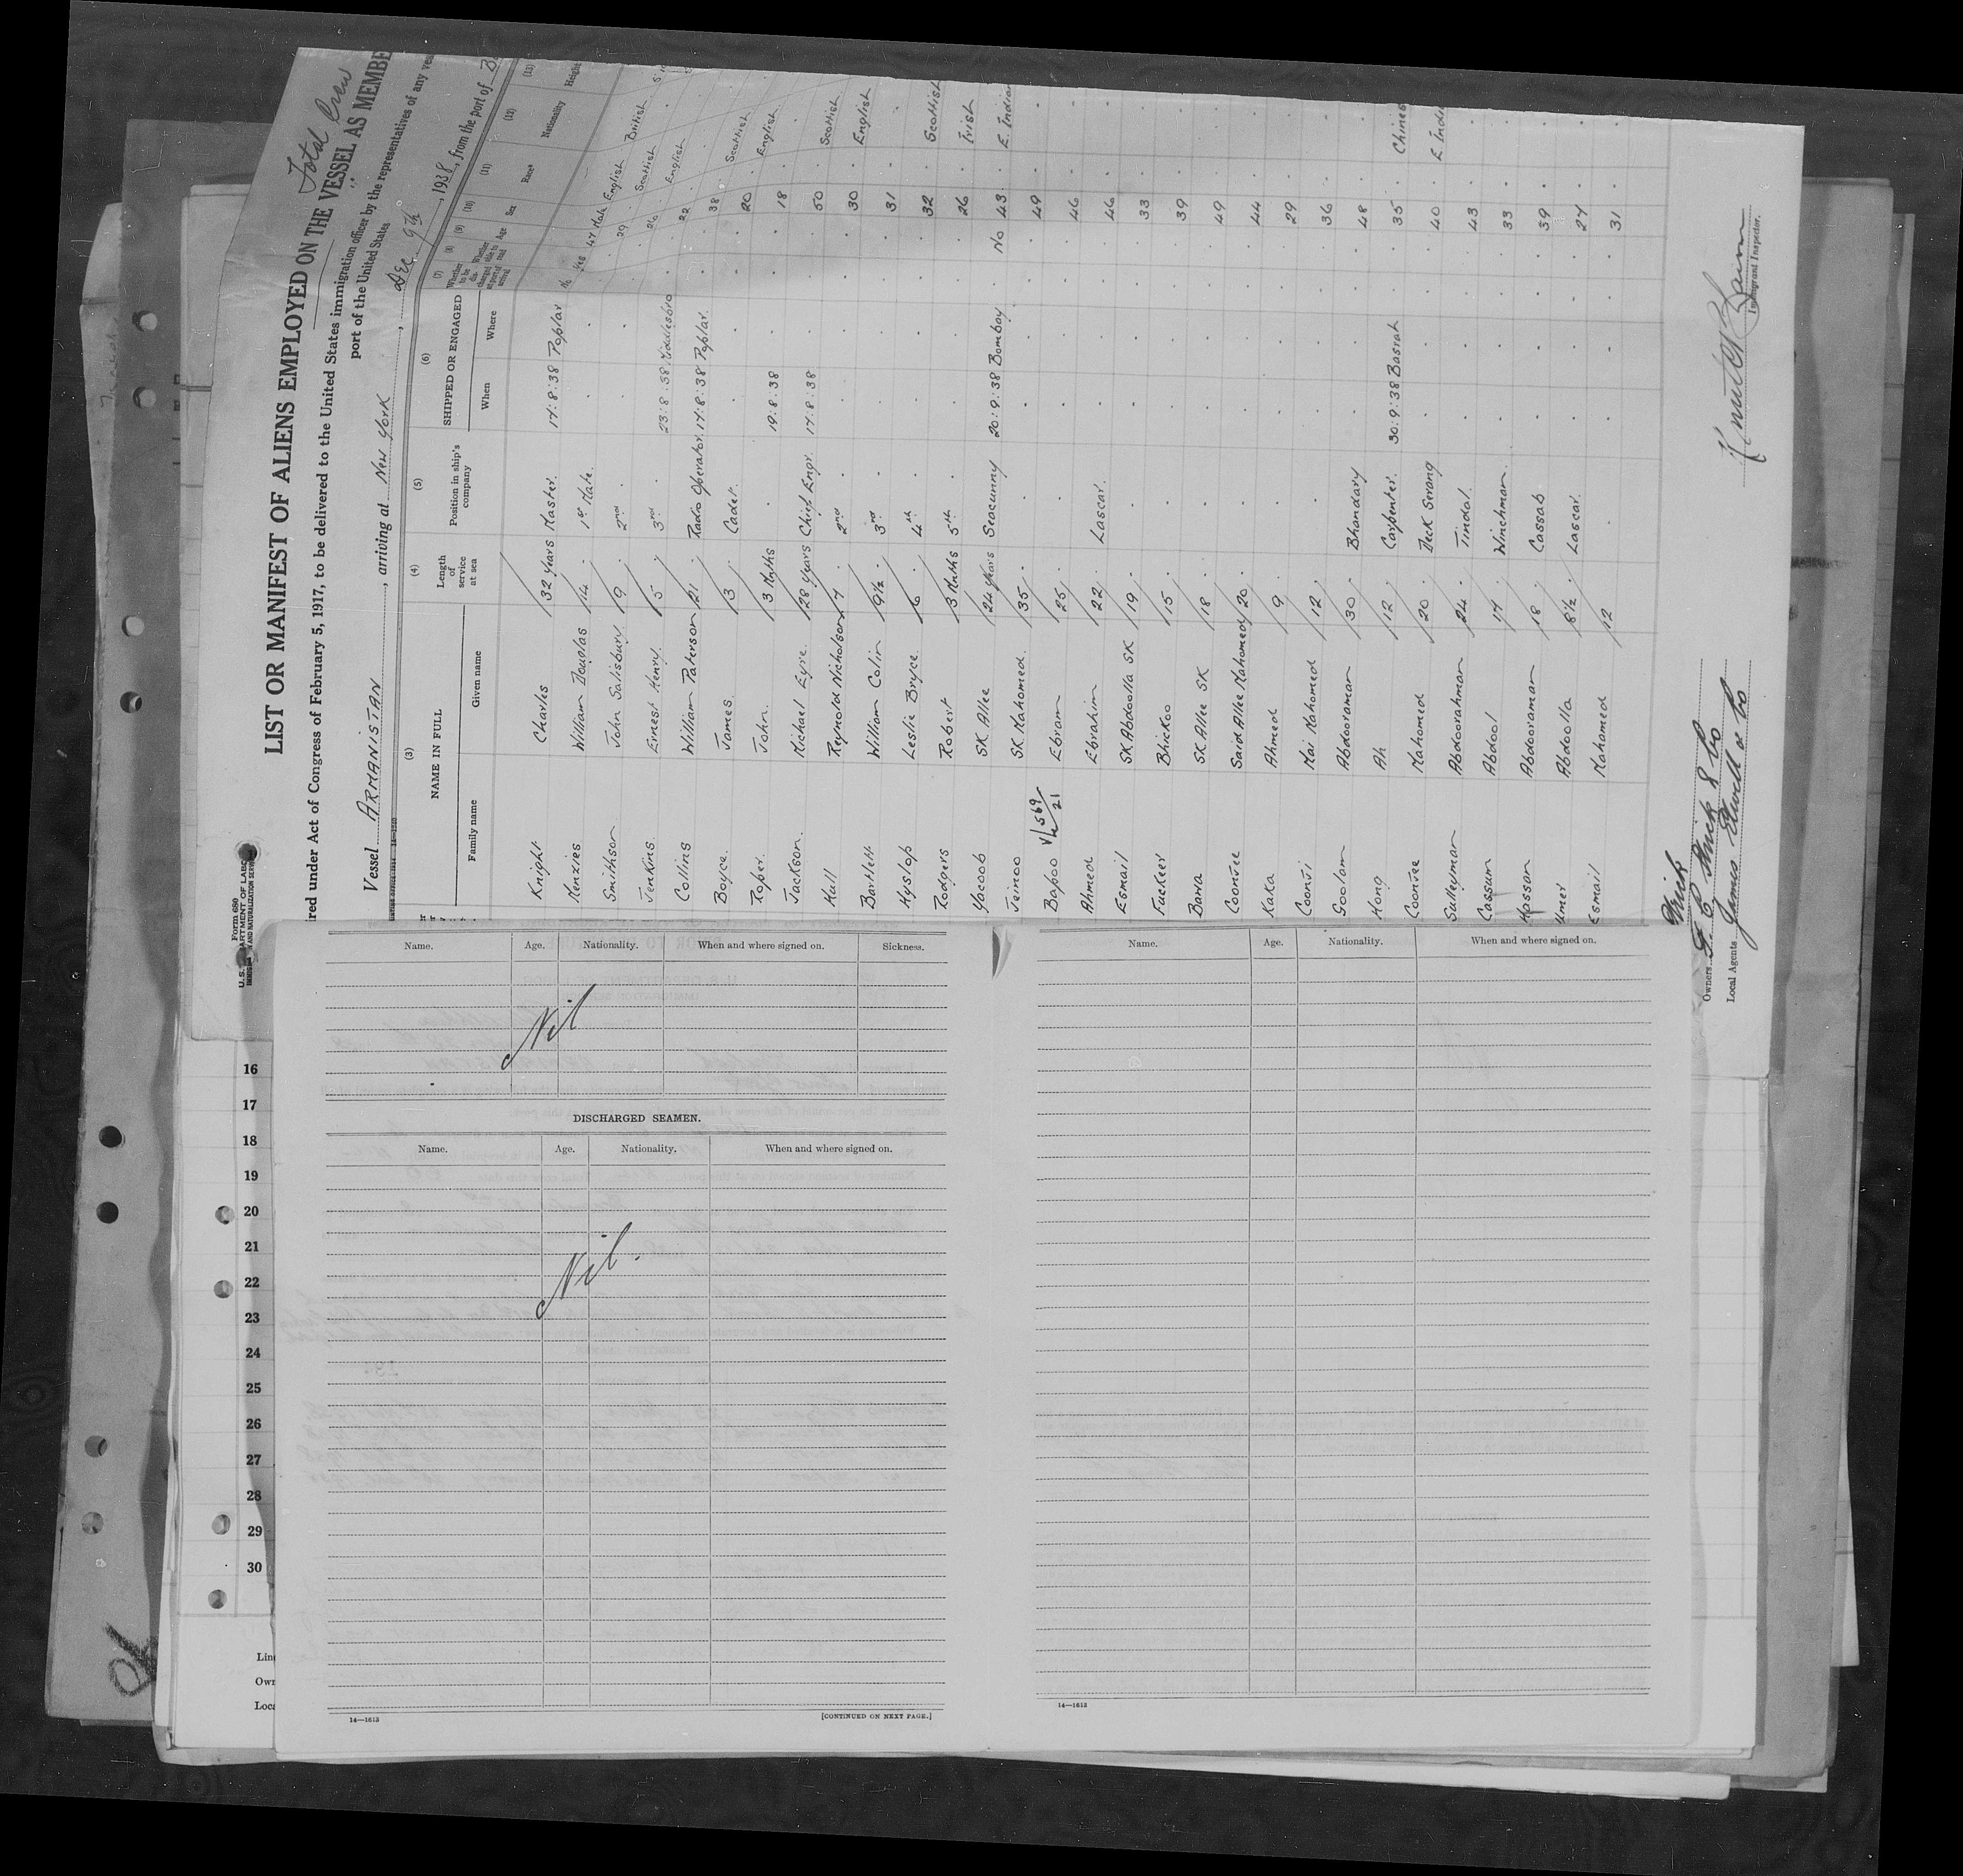 Total Crew
LIST OR MANIFEST OF ALIENS EMPLOYED ON THE VESSEL AS MEMBE
red under Act of Congress of February 5, 1917, to be delivered to the United States immigration officer by the representatives of any ves
port of the United States
Vessel ARMANISTAN, arriving at New York, Dec. 9th, 1938, from the port of B
Form 680
U.S. DEPARTMENT OF LABOR
IMMIGRATION AND NATURALIZATION SERVICE
(3) (4) (5) (6) (7) (8) (9) (10) (11) (12) (13)
NAME IN FULL Length of service at sea Position in ship's company SHIPPED OR ENGAGED Whether to be discharged at port of arrival Whether able to read Age Sex Race* Nationality Height
Family name Given name When Where
Knight Charles 32 years Master. 17:8:38 Poplar No Yes 47 Male English British
Menzies William Douglas 14 . 1st Mate. . . . . 29 . Scottish .
Smithson John Salisbury 9 . 2nd . . . 26 . English
Jenkins Ernest Henry. 5 . 3rd . 23:8:38 Middlesbro 22 .
Collins William Paterson 21 . Radio Operator. 17:8:38 Poplar. 38 . Scottish
Boyce. James. 3 . Cadet. . . 20 . English
Roper. John. 3 Mnths . 19:8:38 . 18 .
Jackson. Michael Eyre. 28 years Chief Engr. 17:8:38 . 50 . Scottish
Hull Reynold Nicholson 7 . 2nd . . 30 . English
Bartlett William Colin 9½ . 3rd . . 31 . .
Hyslop Leslie Bryce 6 . 4th . . 32 . Scottish
Rodgers Robert 3 Mnths 5th . . 26 . Irish
Yacoob SK Allee 24 years Seacunny 20:9:38 Bombay . No 43 . E. Indian
Jeinoo SK Mahomed. 35 . . . . 49 .
Bapoo Ebram 25 . . . . 46 .
V/L 569/21
Ahmed Ebrahim 22 . Lascar. . . 46 .
Esmail SK Abdoolla SK 19 . . . . 33 .
Fuckeer Bhickoo 15 . . . . 39 .
Bawa SK Allee SK 18 . . . . 49 .
Coonjee Said Allee Mahomed 20 . . . . 44 .
Kaka Ahmed 9 . . . . 29 .
Coonji Mai Mahomed 12 . . . . 36 .
Goolam Abdooraman 30 . Bhandary . . 48 .
Hong Ah 12 . Carpenter. 30:9:38 Basrah 35 . Chines
Coonjee Mahomed 20 . Deck Serang . . 40 . E. Indi
Sulleyman Abdoorahman 24 . Tindal. . . 43 .
Cassum Abdool 17 . Winchman. . . 33 .
Hassan Abdooraman 18 . Cassab . . 39 .
Umer Abdoolla 8½ . Lascar. . . 27 .
Esmail Mahomed 12 . . . 31 .
Strick
Owners F. C. Strick & Co
Local Agents James Elwell & Co
Immigrant Inspector.
Name. Age. Nationality. When and where signed on. Sickness.
Nil
DISCHARGED SEAMEN.
Name. Age. Nationality. When and where signed on.
Nil.
14—1613 [CONTINUED ON NEXT PAGE.]
Name. Age. Nationality. When and where signed on.
14—1613
16
17
18
19
20
21
22
23
24
25
26
27
28
29
30
Lin
Own
Loca
OK